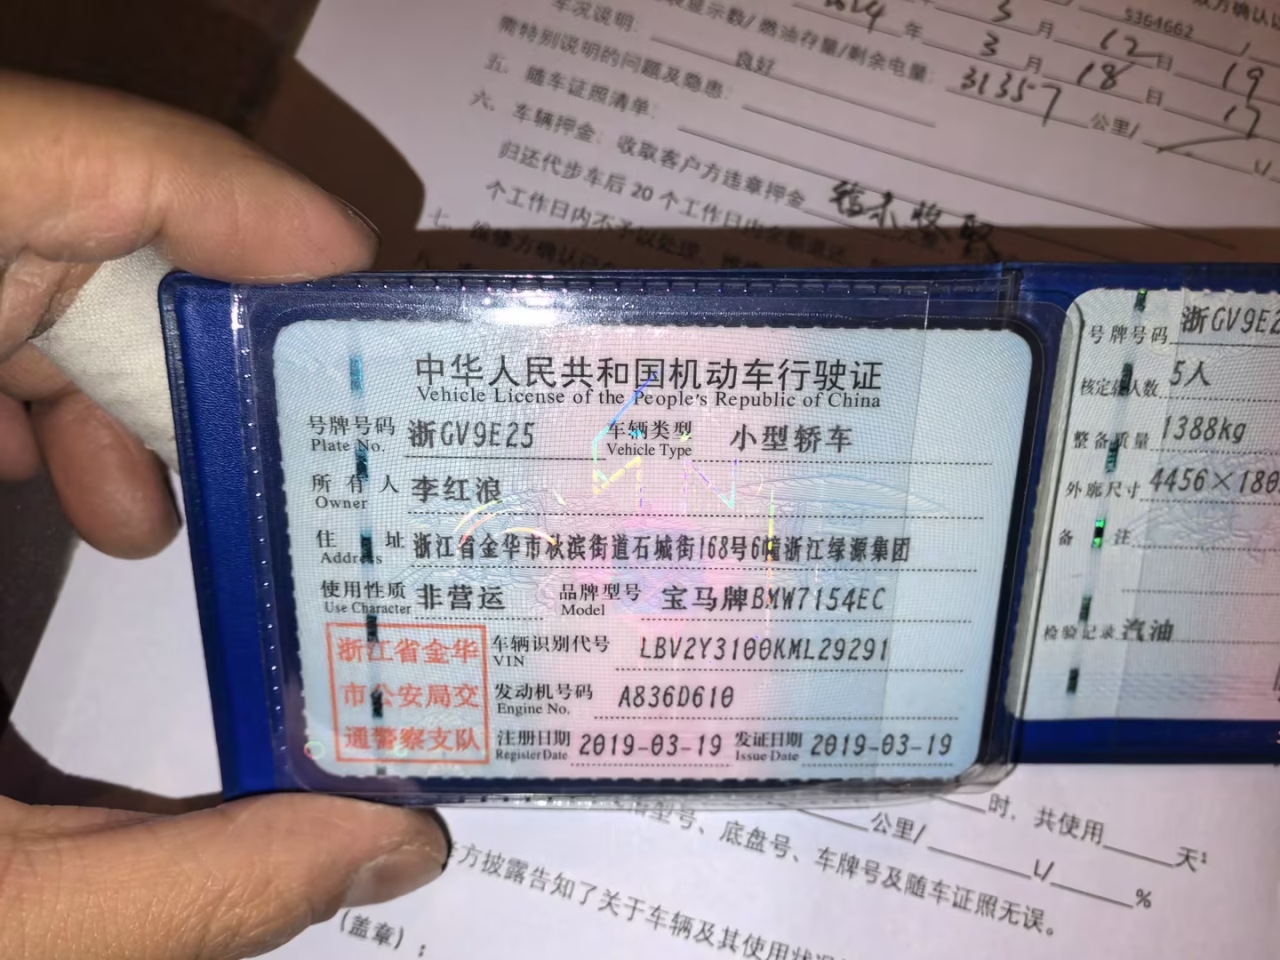 车况说明:
良好
5364662
2024 年 3 月 12 日 19
需特别说明的问题及隐患:
显示数/燃油存量/剩余电量:
3 月 18 日 17
31357 公里/
五、随车证照清单:
六、车辆押金: 收取客户方违章押金 暂未收取
归还代步车后 20 个工作日内全额退还
个工作日内不予以处理
中华人民共和国机动车行驶证
Vehicle License of the People's Republic of China
号牌号码 浙GV9E25 车辆类型 小型轿车
Plate No. Vehicle Type
所有人 李红浪
Owner
住址 浙江省金华市秋滨街道石城街168号6幢浙江绿源集团
Address
使用性质 非营运 品牌型号 宝马牌BMW7154EC
Use Character Model
浙江省金华
市公安局交
通警察支队
车辆识别代号 LBV2Y3100KML29291
VIN
发动机号码 A836D610
Engine No.
注册日期 2019-03-19 发证日期 2019-03-19
Register Date Issue Date
号牌号码 浙GV9E2
核定载人数 5人
整备质量 1388kg
外廓尺寸 4456×180
备注
检验记录 汽油
时, 共使用 天;
公里/ L/ %
型号、底盘号、车牌号及随车证照无误。
方披露告知了关于车辆及其使用状况
(盖章);